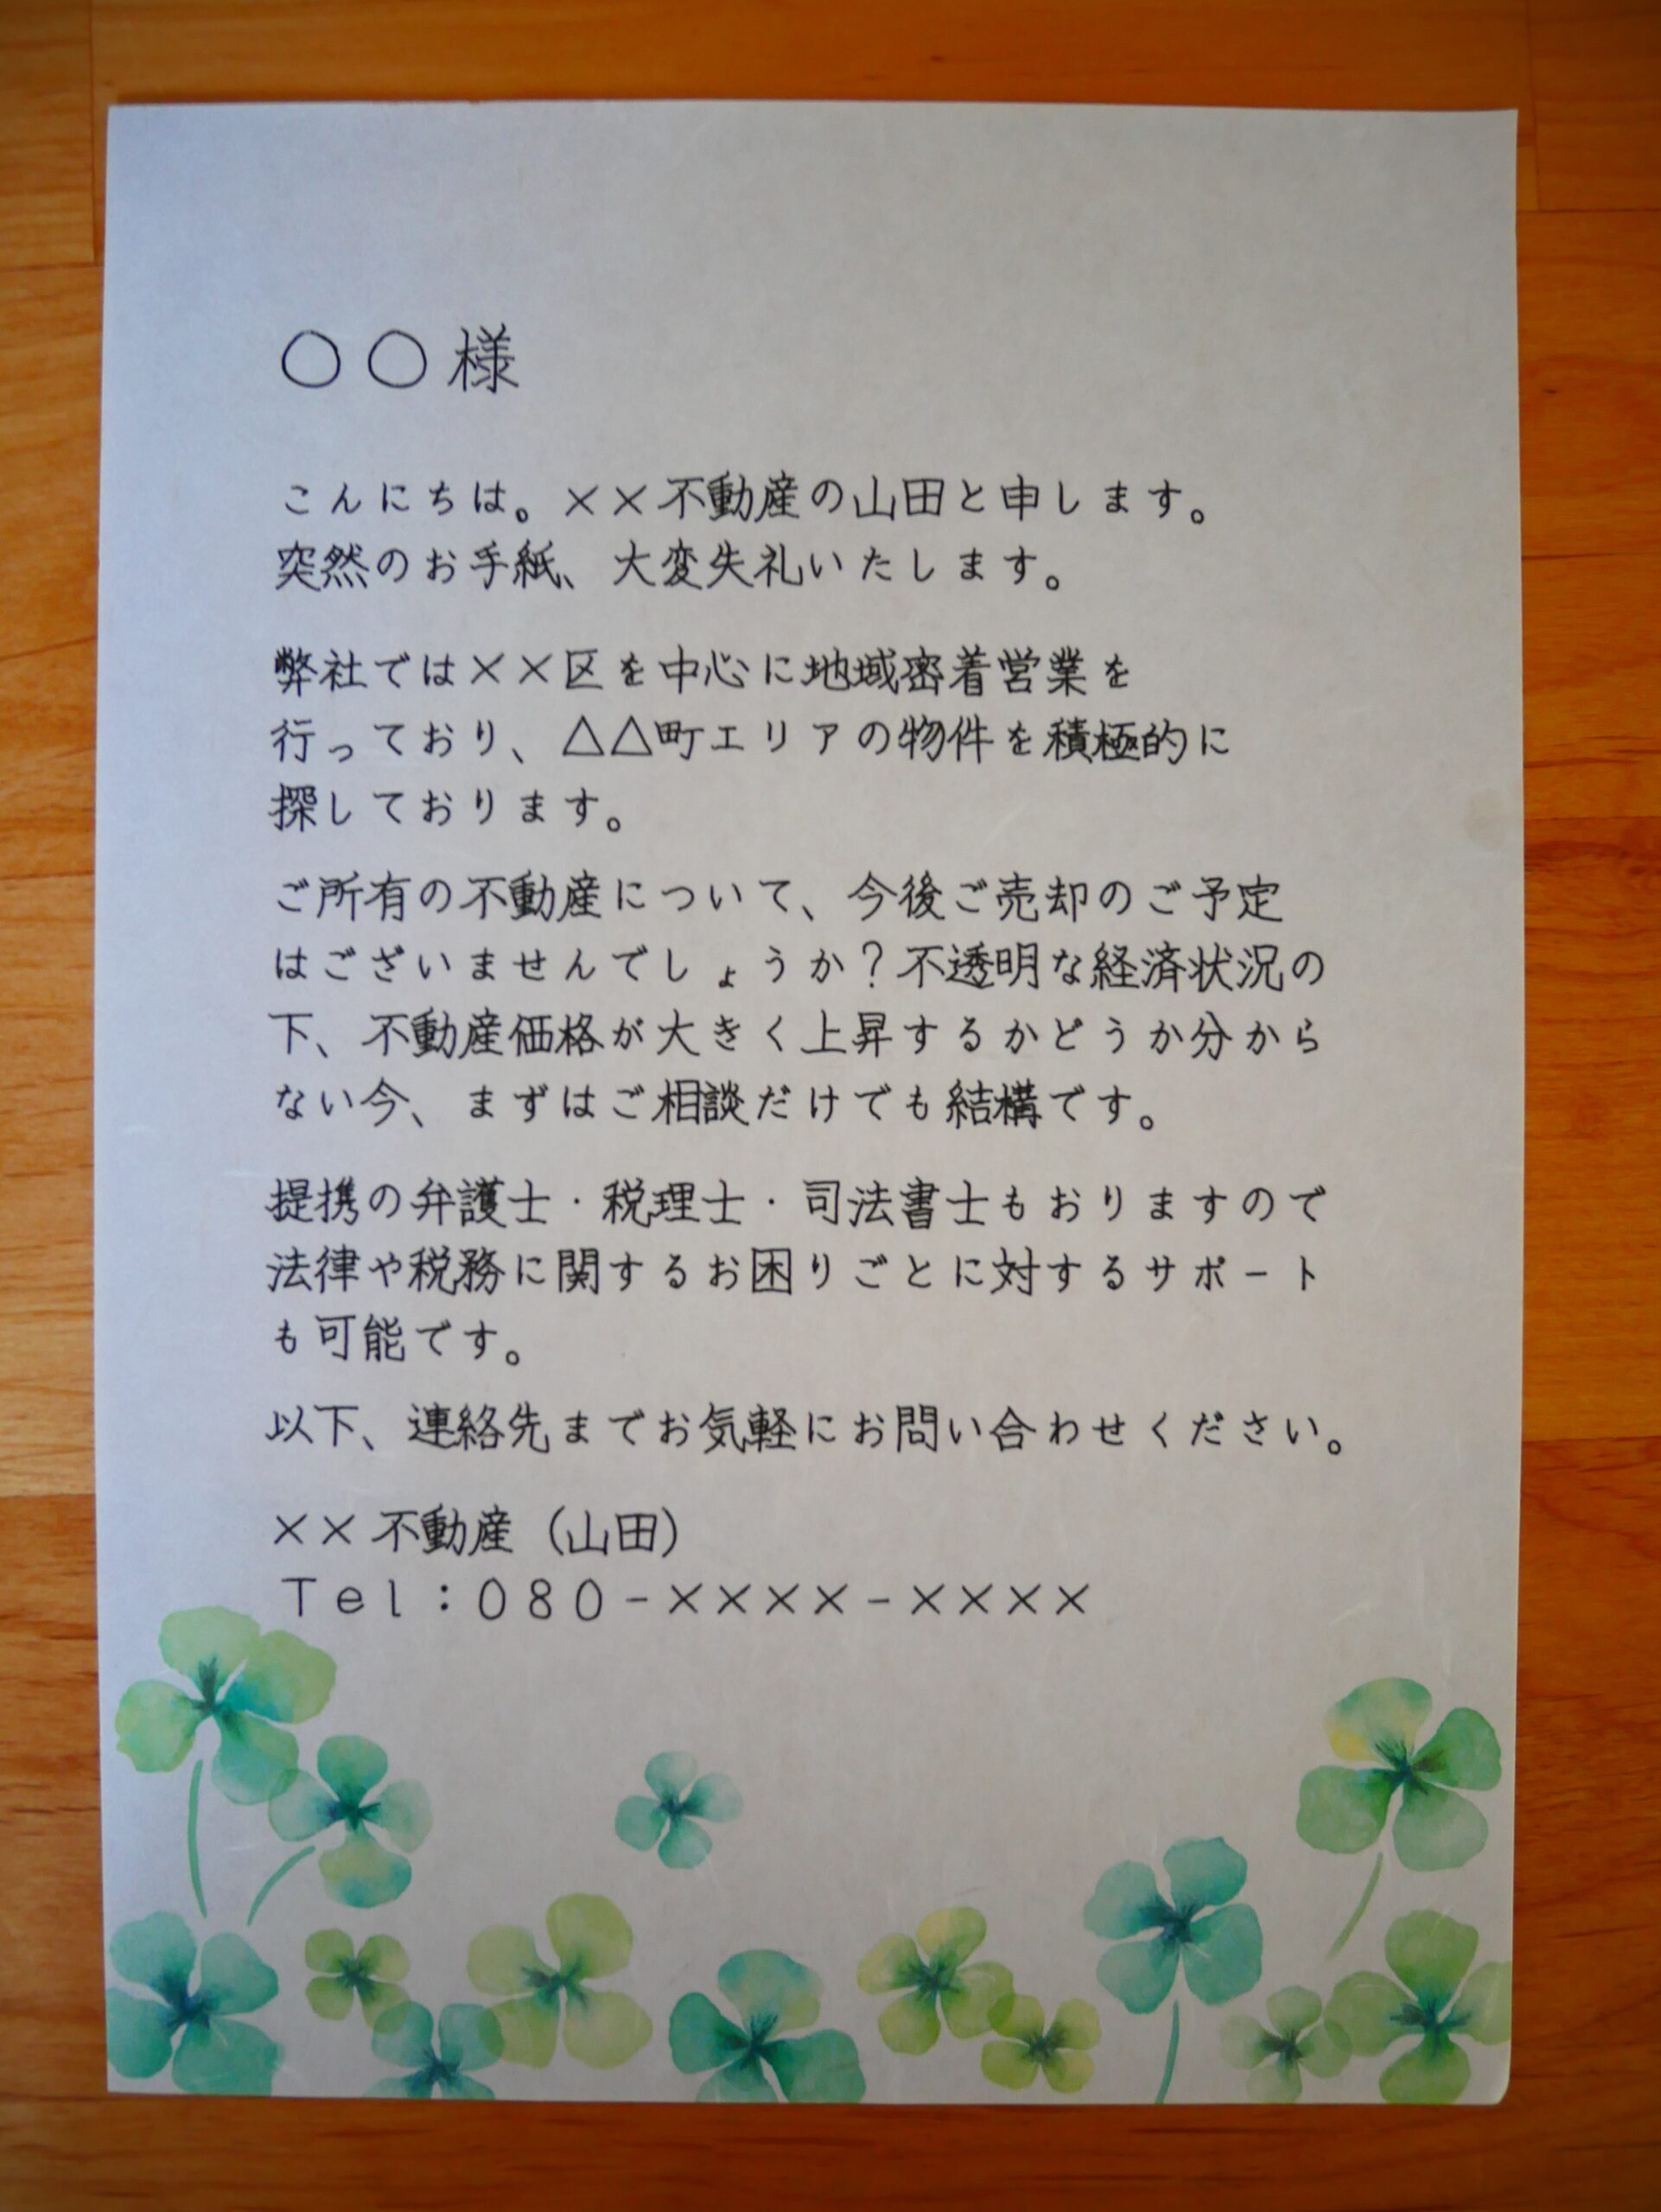 〇〇様
こんにちは。××不動産の山田と申します。
突然のお手紙、大変失礼いたします。
弊社では××区を中心に地域密着営業を
行っており、△△町エリアの物件を積極的に
探しております。
ご所有の不動産について、今後ご売却のご予定
はございませんでしょうか?不透明な経済状況の
下、不動産価格が大きく上昇するかどうか分から
ない今、まずはご相談だけでも結構です。
提携の弁護士・税理士・司法書士もおりますので
法律や税務に関するお困りごとに対するサポート
も可能です。
以下、連絡先までお気軽にお問い合わせください。
××不動産(山田)
Tel:080-××××-××××